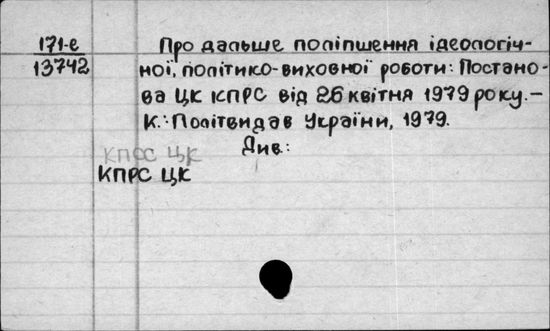 171-е
13742
Про дальше поліпшення ідеологіч-
ної, політико-виховної роботи: Постано-
ва ЦК КПРС від 26 квітня 1979 року.—
К.: Політвидав України, 1979.
Див.:
КПСС ЦК
КПРС ЦК